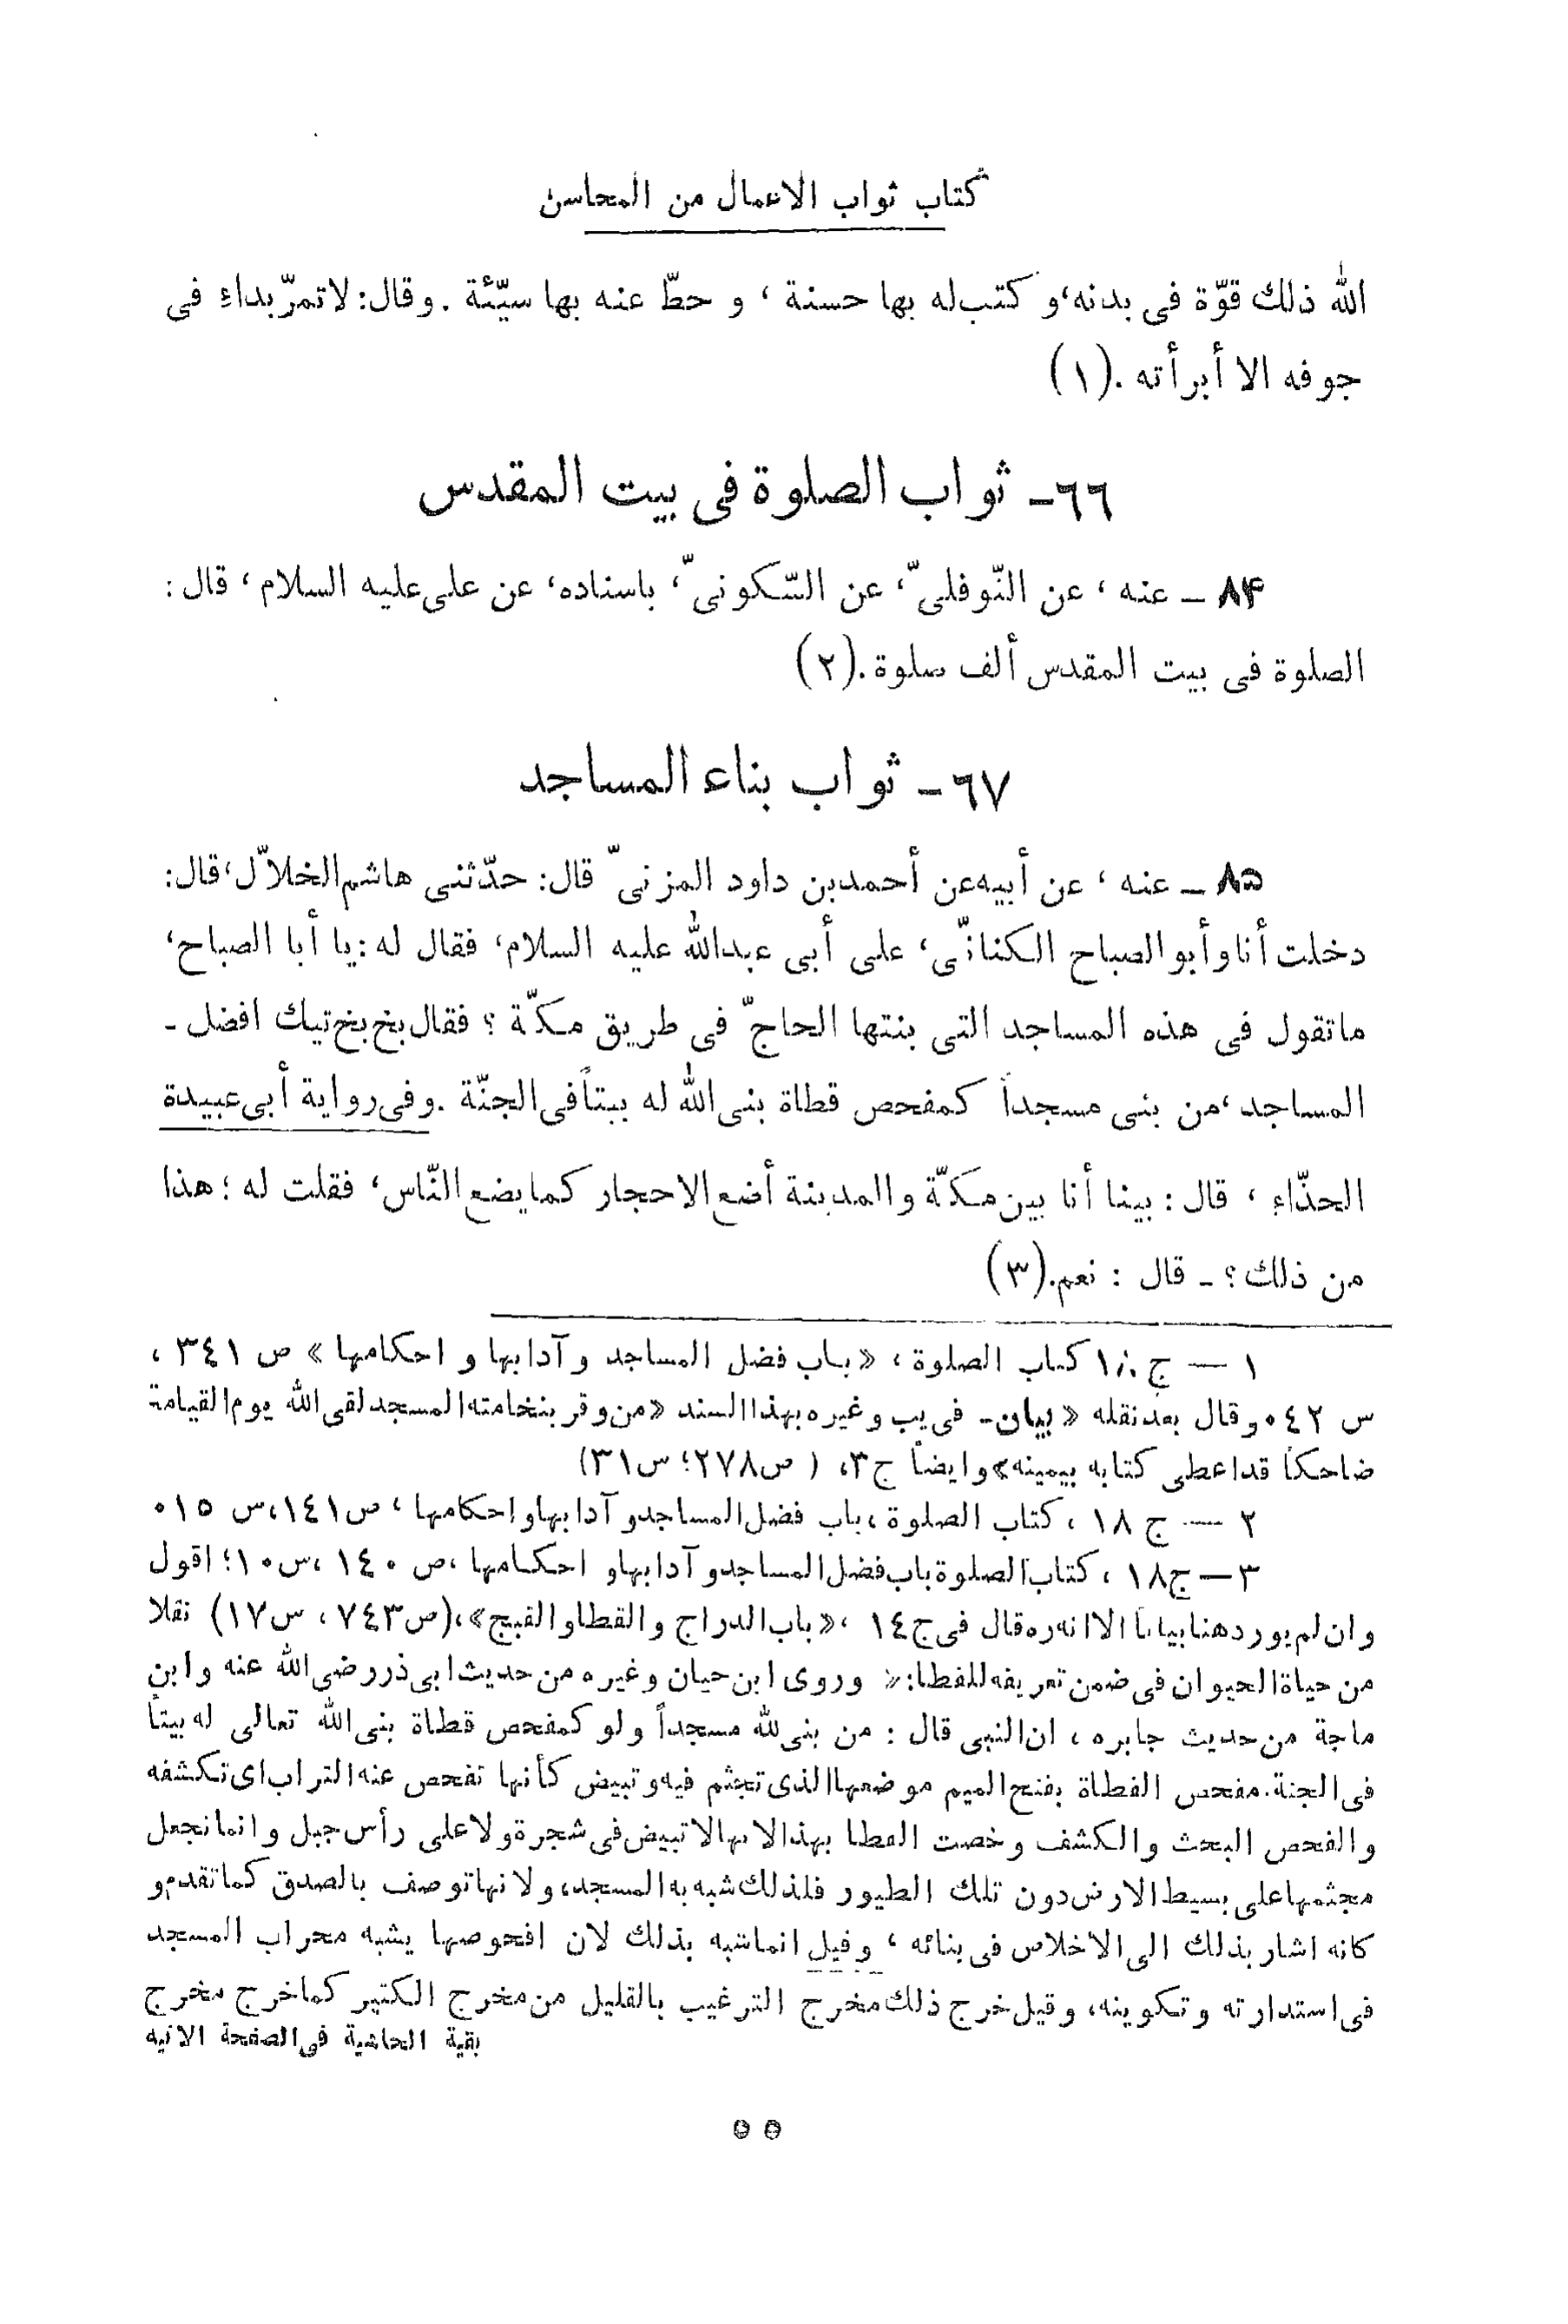 كتاب ثواب الاعمال من المحاسن
الله ذلك قوّة فى بدنه، و كتب له بها حسنة ، و حطّ عنه بها سيّئة . وقال: لاتمرّ بداء فى
جوفه الا أبرأته .(١)
٦٦- ثواب الصلوة فى بيت المقدس
٨۴ - عنه ، عن النّوفلىّ، عن السّكونىّ، باسناده، عن على عليه السلام ، قال :
الصلوة فى بيت المقدس ألف صلوة .(٢)
٦٧- ثواب بناء المساجد
٨۵ - عنه ، عن أبيه عن أحمد بن داود المزنىّ قال: حدّثنى هاشم الخلاّل، قال:
دخلت أنا وأبو الصباح الكنانّى، على أبى عبدالله عليه السلام، فقال له : يا أبا الصباح،
ماتقول فى هذه المساجد التى بنتها الحاجّ فى طريق مكّة ؟ فقال بخ بخ تيك افضل -
المساجد ، من بنى مسجداً كمفحص قطاة بنى الله له بيتاً فى الجنّة . وفى رواية أبى عبيدة
الحذّاء ، قال : بينا أنا بين مكّة والمدينة أضع الاحجار كما يضع النّاس، فقلت له : هذا
من ذلك؟ - قال : نعم.(٣)
١ — ج ١٨ كتاب الصلوة ، «باب فضل المساجد و آدابها و احكامها » ص ٣٤١ ،
س ٤٢ ٠ وقال بعد نقله « بيان- فى يب وغيره بهذا السند «من وقر بنخامته المسجد لقى الله يوم القيامة
ضاحكاً قد اعطى كتابه بيمينه» وايضاً ج ٣، ( ص ٢٧٨؛ س ٣١)
٢ — ج ١٨ ، كتاب الصلوة ، باب فضل المساجد و آدابها و احكامها ، ص ١٤١، س ١٥ ٠
٣ — ج ١٨ ، كتاب الصلوة باب فضل المساجد و آدابها و احكامها ، ص ١٤٠ ، س ١٠؛ اقول
وان لم يورد هنا بياناً الا انه ره قال فى ج ١٤ ، «باب الدراج والقطا والقبج»، (ص ٧٤٣ ، س ١٧) نقلا
من حياة الحيوان فى ضمن تعريفه للقطا: « وروى ابن حيان وغيره من حديث ابى ذر رضى الله عنه وابن
ماجة من حديث جابره ، ان النبى قال : من بنى لله مسجداً ولو كمفحص قطاة بنى الله تعالى له بيتاً
فى الجنة. مفحص القطاة بفتح الميم موضعها الذى تجثم فيه و تبيض كأنها تفحص عنه التراب اى تكشفه
والفحص البحث والكشف وخصت القطا بهذا لانها لا تبيض فى شجرة ولا على رأس جبل وانما تجعل
مجثمها على بسيط الارض دون تلك الطيور فلذلك شبه به المسجد، ولانها توصف بالصدق كما تقدم و
كانه اشار بذلك الى الاخلاص فى بنائه ، وقيل انما شبه بذلك لان افحوصها يشبه محراب المسجد
فى استدارته وتكوينه، وقيل خرج ذلك مخرج الترغيب بالقليل من مخرج الكثير كما خرج مخرج
بقية الحاشية فى الصفحة الاتيه
٥٥